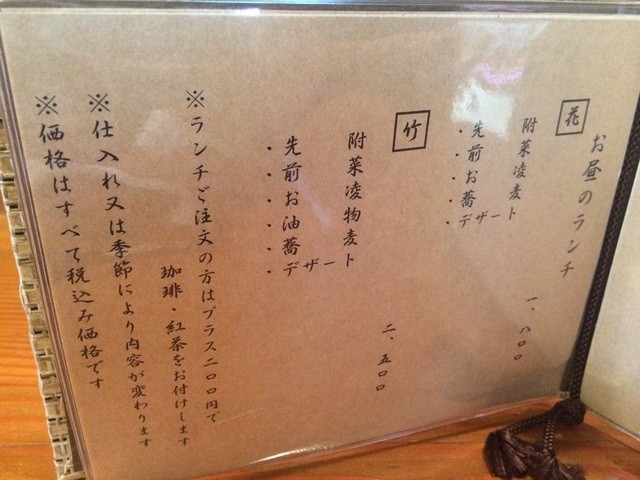 お昼のランチ
花
一、八〇〇
・先附
・前菜
・お凌
・蕎麦
・デザート
竹
二、五〇〇
・先附
・前菜
・お凌
・油物
・蕎麦
・デザート
※ランチご注文の方はプラス二〇〇円で
珈琲・紅茶をお付けします
※仕入れ又は季節により内容が変わります
※価格はすべて税込み価格です